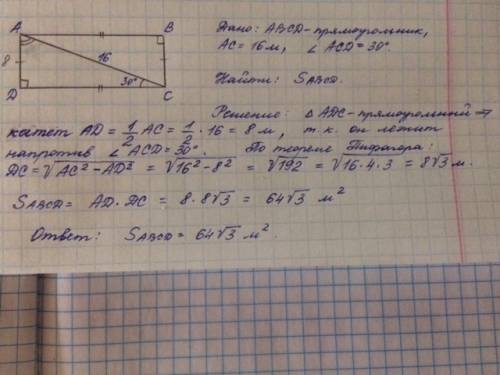 A
B
Дано: ABCD - прямоугольник,
AC = 16 м, ∠ ACD = 30°
8
16
30°
D
C
Найти: SABCD.
Решение: △ ADC - прямоугольный ⇒
катет AD = 1/2 AC = 1/2 · 16 = 8 м, т.к. он лежит
напротив ∠ ACD = 30°. По теореме Пифагора:
DC = √AC² - AD² = √16² - 8² = √192 = √16 · 4 · 3 = 8√3 м.
SABCD = AD · DC = 8 · 8√3 = 64√3 м²
Ответ: SABCD = 64√3 м².